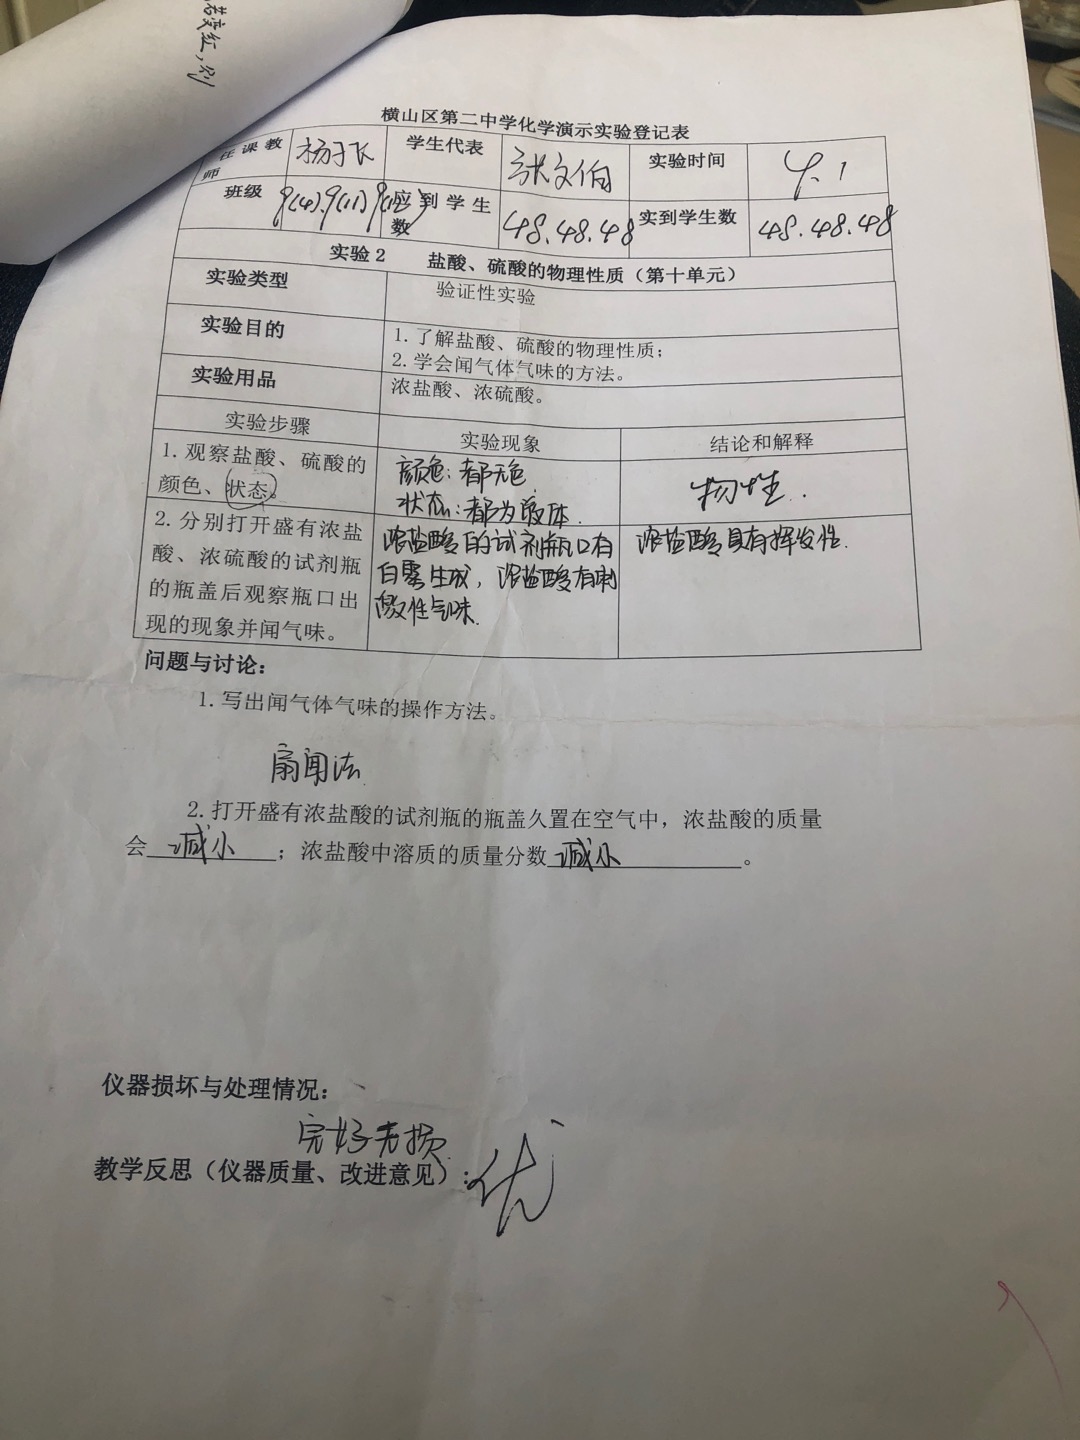 若变红，则
横山区第二中学化学演示实验登记表
任课教师 学生代表 张文伯 实验时间 4.1
班级 9(4).9(11) 应到学生数 48.48.48 实到学生数 48.48.48
实验2 盐酸、硫酸的物理性质（第十单元）
实验类型 验证性实验
实验目的 1.了解盐酸、硫酸的物理性质；
2.学会闻气体气味的方法。
实验用品 浓盐酸、浓硫酸。
实验步骤 实验现象 结论和解释
1.观察盐酸、硫酸的
颜色、状态。
颜色：都无色
状态：都为液体.
物性.
2.分别打开盛有浓盐
酸、浓硫酸的试剂瓶
的瓶盖后观察瓶口出
现的现象并闻气味。
浓盐酸的试剂瓶口有
白雾生成，浓盐酸有刺
激性气味.
浓盐酸具有挥发性.
问题与讨论：
1.写出闻气体气味的操作方法。
扇闻法
2.打开盛有浓盐酸的试剂瓶的瓶盖久置在空气中，浓盐酸的质量
会 减小 ；浓盐酸中溶质的质量分数 减小 。
仪器损坏与处理情况：
完好无损
教学反思（仪器质量、改进意见）：优